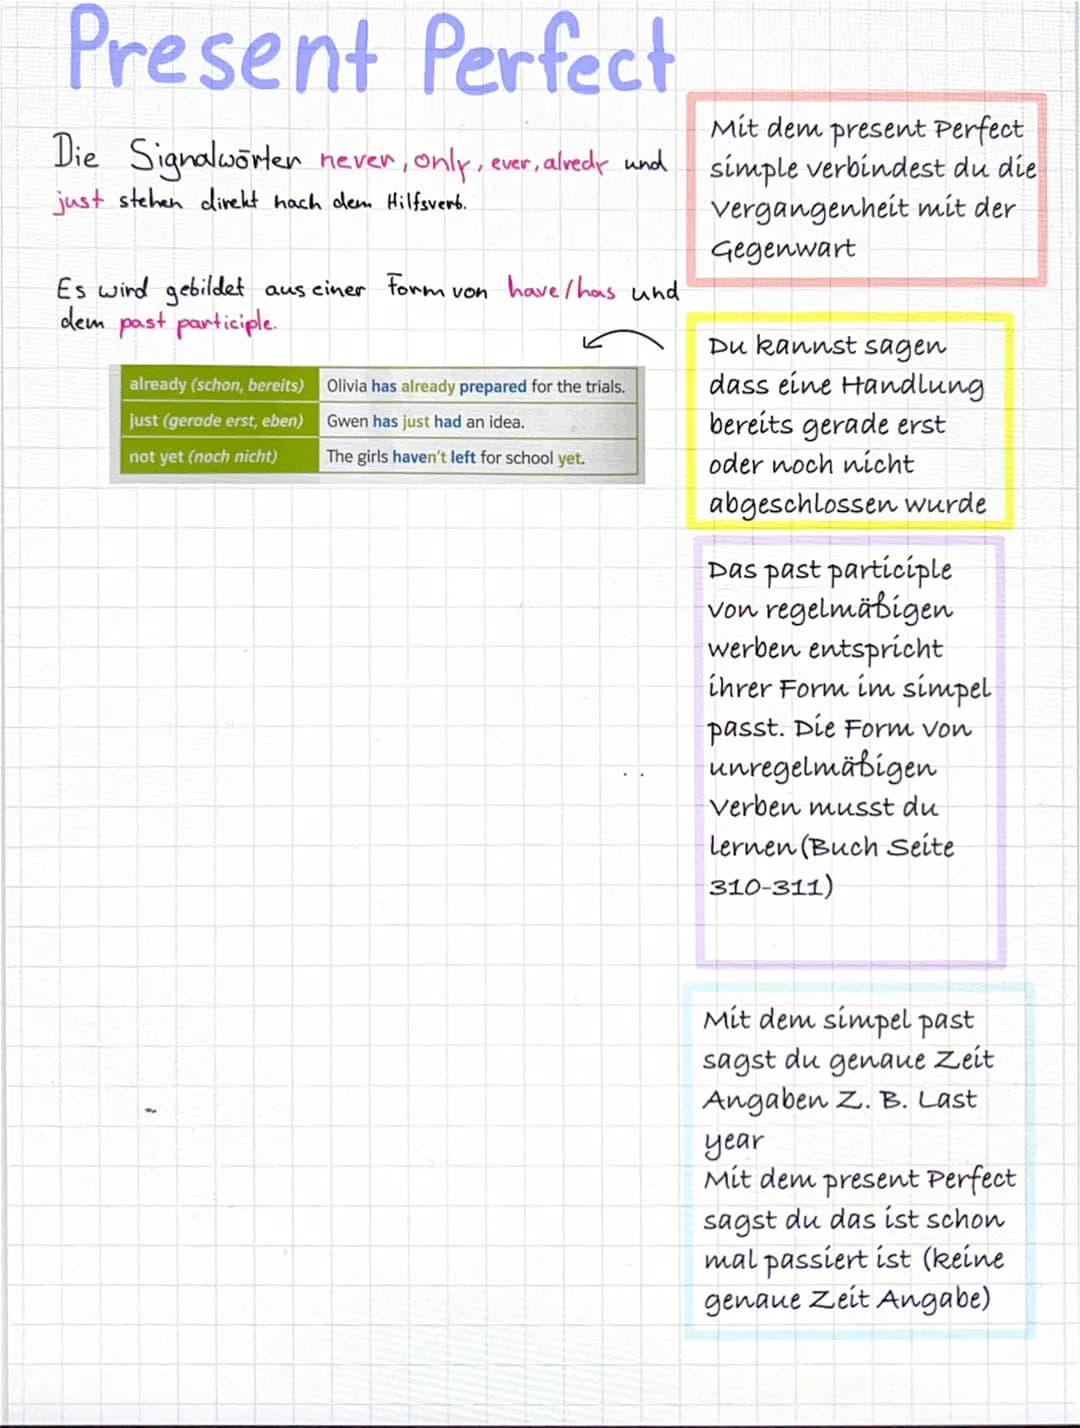 Present Perfect
Die Signalwörter never, only, ever, alredy und
just stehen direkt nach dem Hilfsverb.
Es wird gebildet aus einer Form von have/has und
dem past participle.
already (schon, bereits) Olivia has already prepared for the trials.
just (gerade erst, eben) Gwen has just had an idea.
not yet (noch nicht) The girls haven't left for school yet.
Mit dem present Perfect
simple verbindest du die
Vergangenheit mit der
Gegenwart
Du kannst sagen
dass eine Handlung
bereits gerade erst
oder noch nicht
abgeschlossen wurde
Das past participle
von regelmäßigen
werben entspricht
ihrer Form im simpel
passt. Die Form von
unregelmäßigen
Verben musst du
lernen (Buch Seite
310-311)
Mit dem simpel past
sagst du genaue Zeit
Angaben Z. B. Last
year
Mit dem present Perfect
sagst du das ist schon
mal passiert ist (keine
genaue Zeit Angabe)